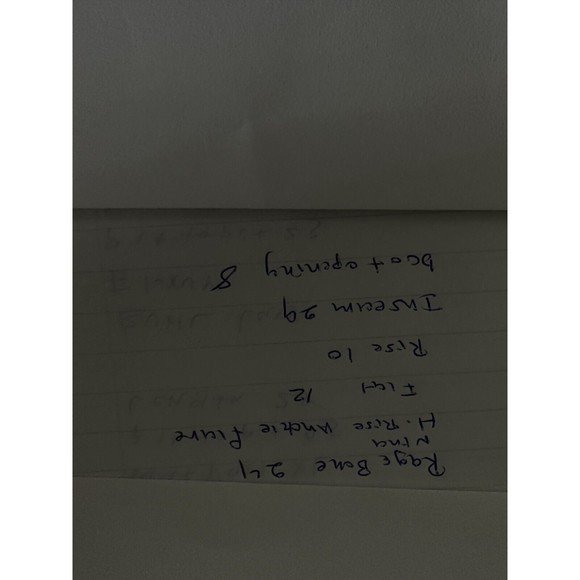 Rage Bone 24
Nina
H. Rise Anckle flare
12
Rise 10
Inseam 29
boot opening 8